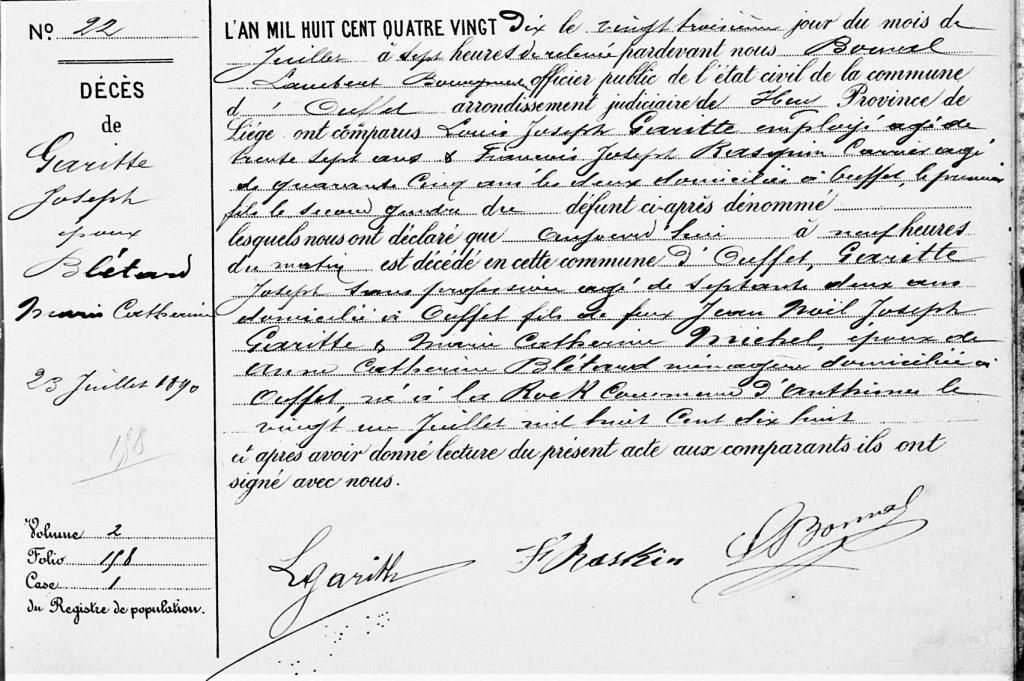 No 22
DÉCÈS
de
Garitte
Joseph
époux
Blétard
Marie Catherine
23 Juillet 1890
158
Volume 2
Folio 158
Case 1
du Registre de population.
L'AN MIL HUIT CENT QUATRE VINGT Dix le vingt troisième jour du mois de
Juillet à sept heures de relevé pardevant nous Bonval
Lambert Bourgmestre officier public de l'état civil de la commune
d' Ouffet arrondissement judiciaire de Huy Province de
Liége ont comparus Louis Joseph Garitte employé agé de
trente sept ans & François Joseph Rasquin Carrier agé
de quarante Cinq ans les deux domiciliés à Ouffet, le premier
fils le second gendre du défunt ci-après dénommé
lesquels nous ont déclaré que aujourd'hui à neuf heures
du matin est décédé en cette commune d' Ouffet, Garitte
Joseph sans profession agé de septante deux ans
domicilié à Ouffet fils de feux Jean Noël Joseph
Garitte & Marie Catherine Michel, époux de
Anne Catherine Blétard ménagère domiciliée à
Ouffet, né à la Rock Commune d'Anthisnes le
vingt un Juillet mil huit Cent dix huit
et après avoir donné lecture du présent acte aux comparants ils ont
signé avec nous.
LGaritte F Raskin LBonval